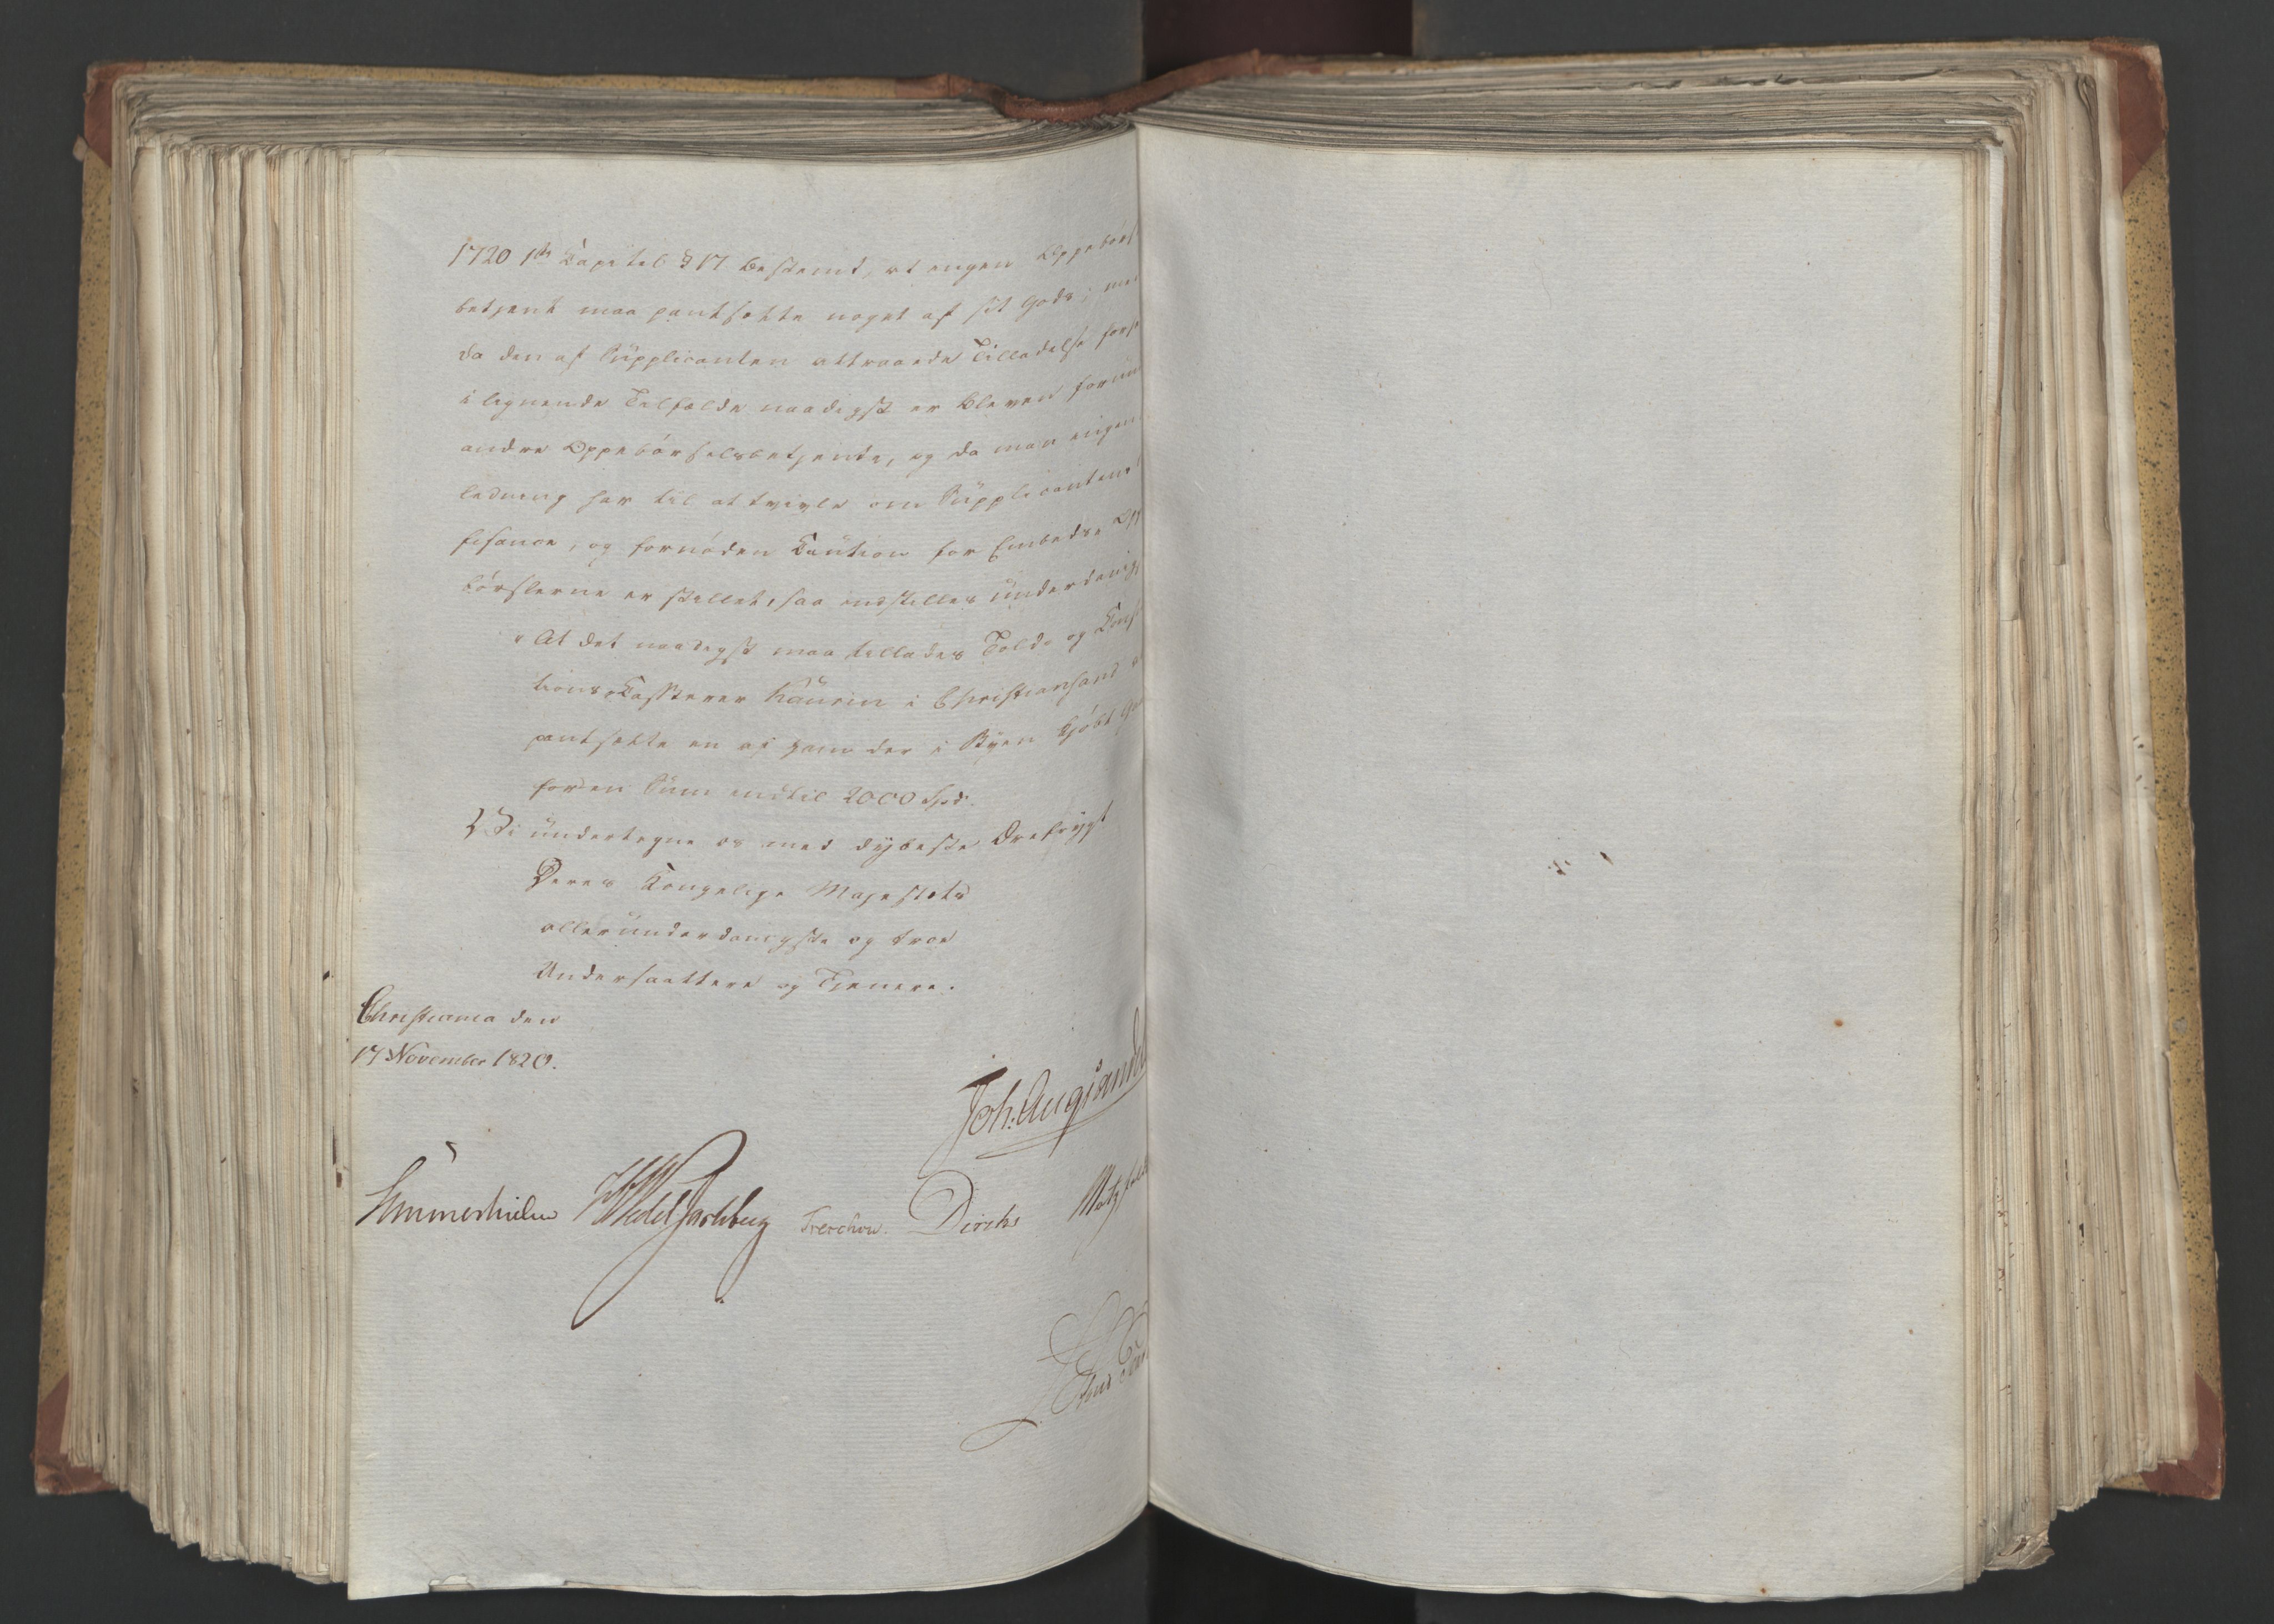 1720 1ste Capitel § 17 bestemt, at ingen Oppebørs
betjent maa pantsætte noget af sit Gods; me
da den af Supplicanten attraaede Tilladelse før
i lignende Tilfælde naadigst er bleven forun
andre Oppebørselsbetjente, og da man ingen
ledning har til at tvivle om Supplicantens
fisance, og fornøden Caution for Embeds Op
børslerne er stillet, saa indstilles underdanigs
"At det naadigst maa tillades Told- og Cons
tions-Casserer Kaurin i Christiansand
pantsætte en af ham der i Byen kjøbt
for en Sum indtil 2000 Spd.
Vi undertegne os med dybeste Ærefrygt
Deres Kongelige Majestæts
allerunderdanigste og troe
Undersaattere og Tjenere.
Christiania den
17 November 1820.
Joh. Aug. Sande
Sommerhielm Wedel Jarlsberg Treschow. Diriks Motzfeld